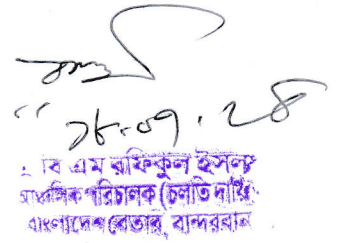 ১৮.০৭.২৪
বি এম রফিকুল ইসলাম
আঞ্চলিক পরিচালক (চলতি দায়িত্ব
বাংলাদেশ বেতার, বান্দরবান